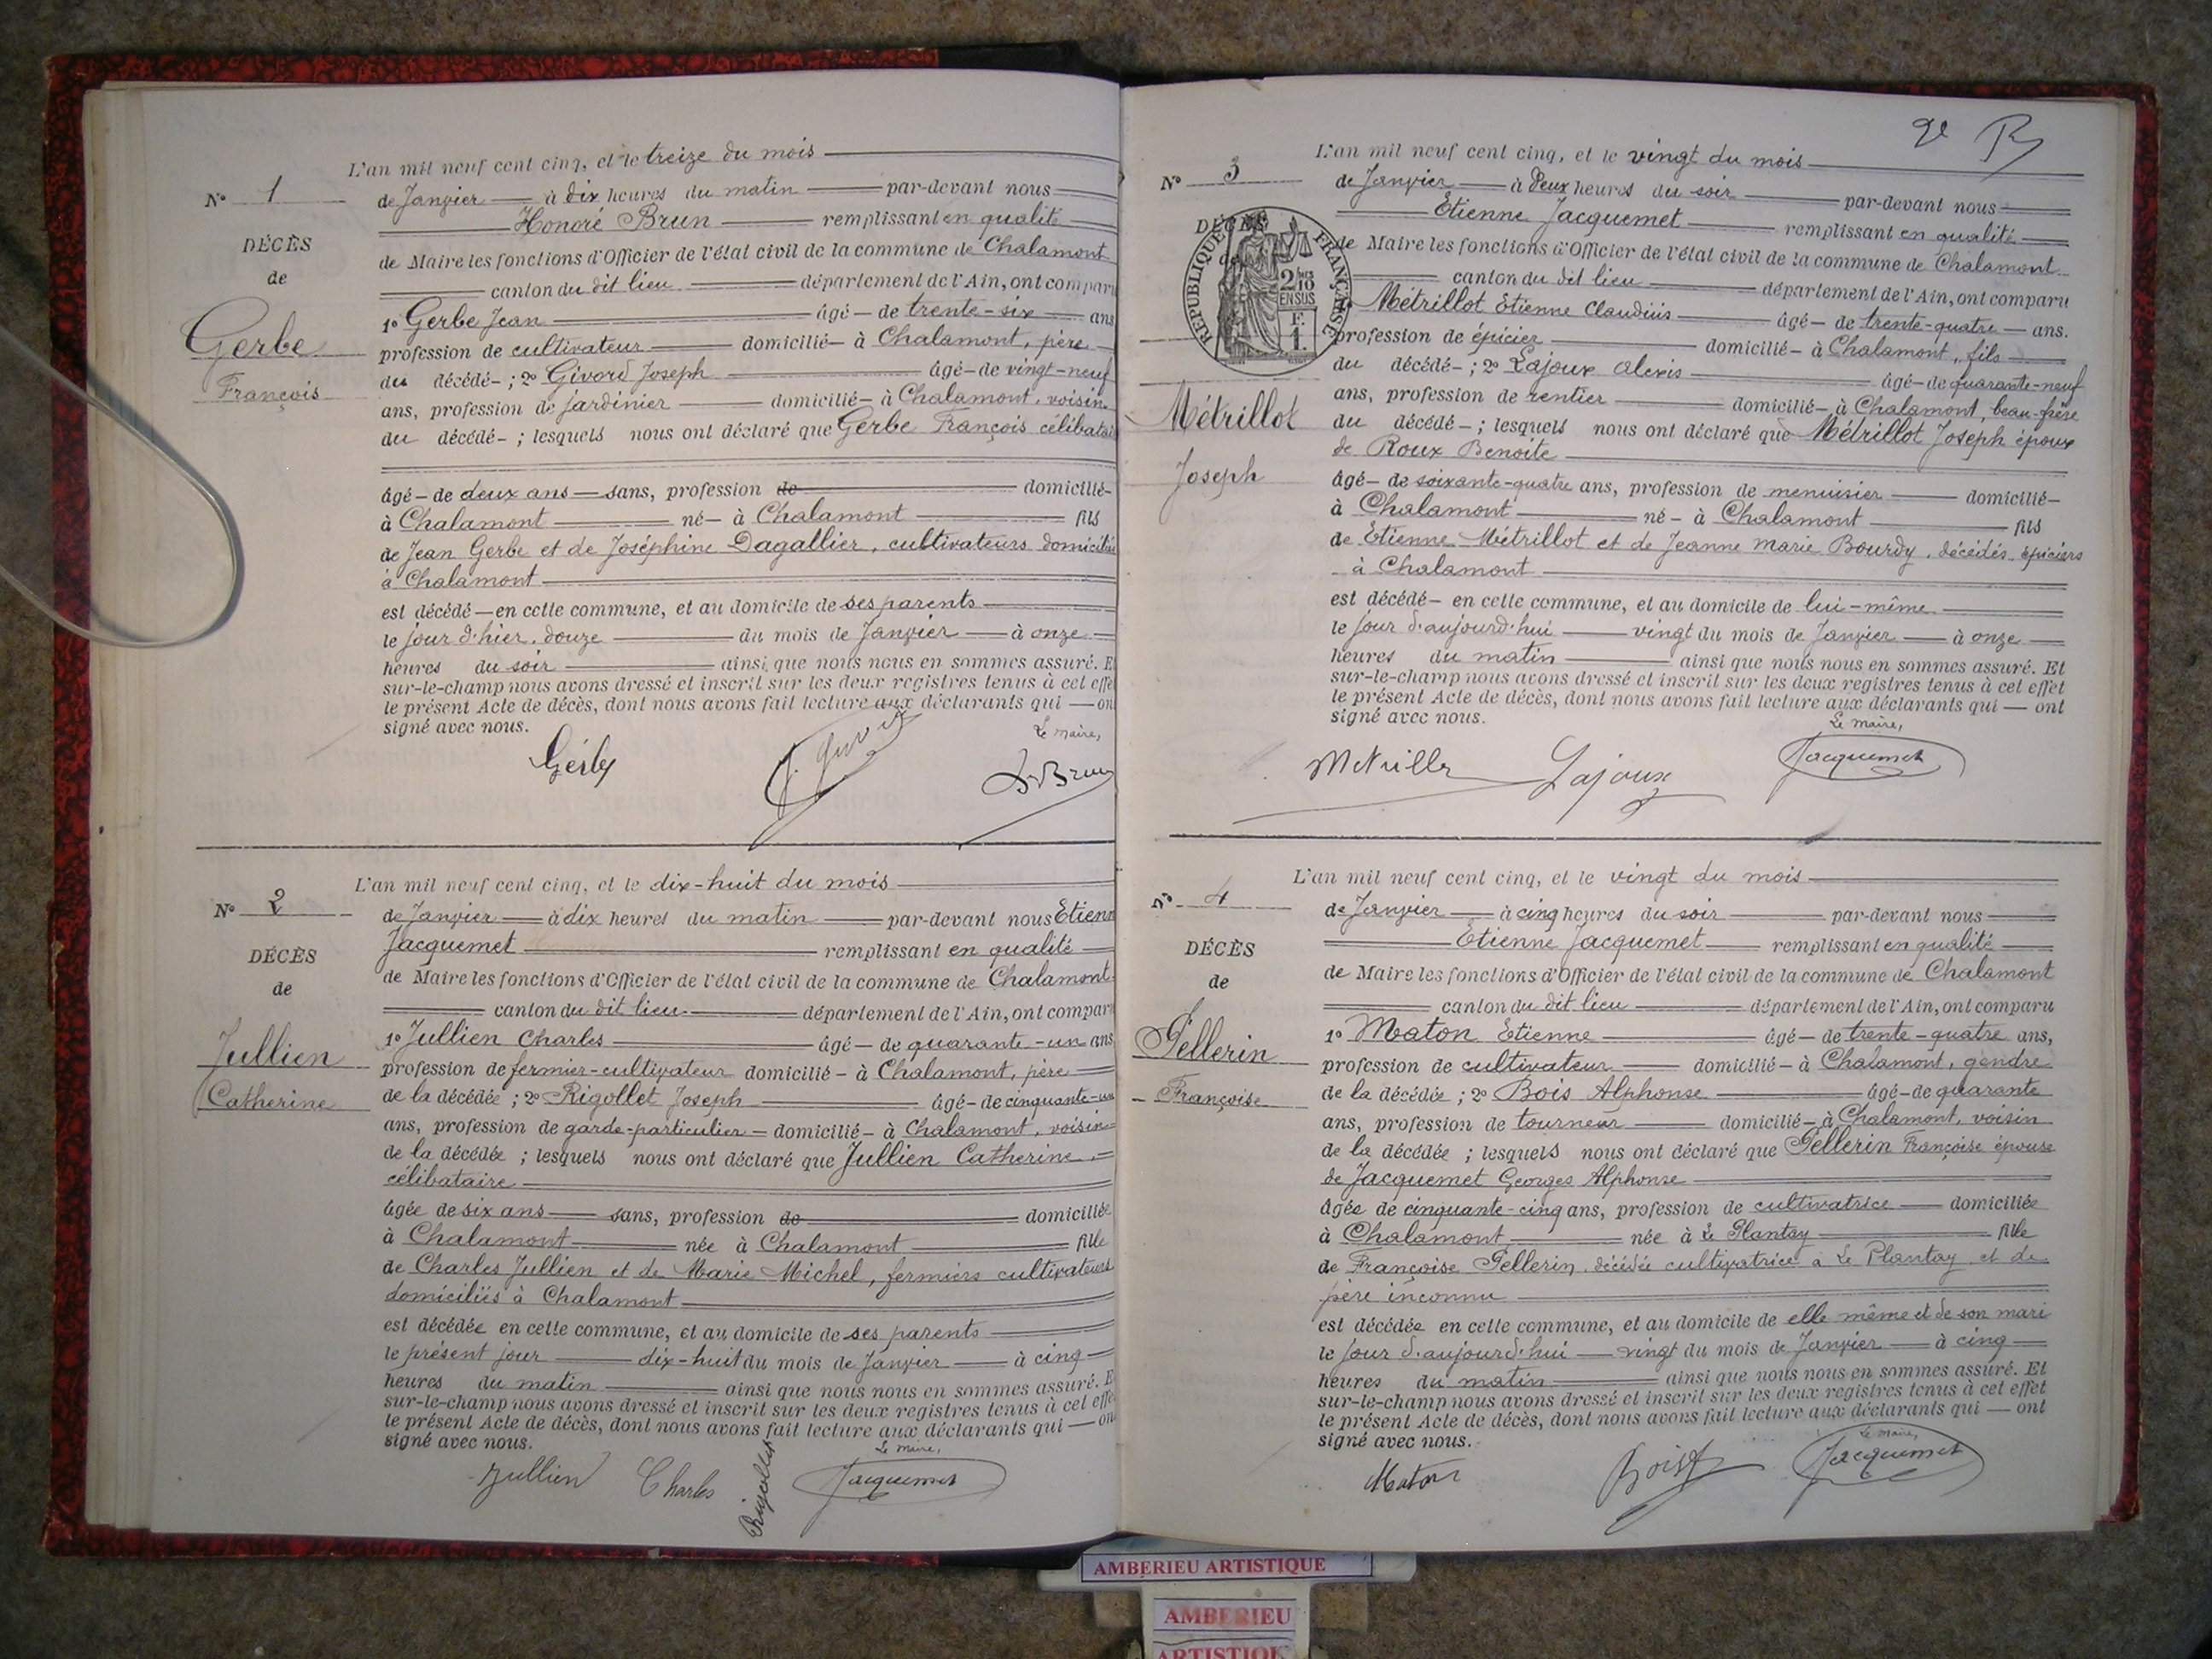 L'an mil neuf cent cinq, et le treize du mois
N° 1
de Janvier à dix heures du matin par-devant nous
Honoré Brun remplissant en qualité
DÉCÈS
de Maire les fonctions d'Officier de l'état civil de la commune de Chalamont
de
canton du dit lieu département de l'Ain, ont comparu
1° Gerbe Jean âgé de trente-six ans
Gerbe
profession de cultivateur domicilié à Chalamont, père
François
du décédé ; 2° Givord Joseph âgé de vingt-neuf
ans, profession de jardinier domicilié à Chalamont, voisin
du décédé ; lesquels nous ont déclaré que Gerbe François célibatai
âgé de deux ans sans, profession de domicilié
à Chalamont né à Chalamont fils
de Jean Gerbe et de Joséphine Dagallier, cultivateurs domiciliés
à Chalamont
est décédé en cette commune, et au domicile de ses parents
le jour d'hier, douze du mois de Janvier à onze
heures du soir ainsi que nous nous en sommes assuré. E
sur-le-champ nous avons dressé et inscrit sur les deux registres tenus à cet effe
le présent Acte de décès, dont nous avons fait lecture aux déclarants qui on
signé avec nous.
Le maire,
L'an mil neuf cent cinq, et le dix-huit du mois
N° 2
de Janvier à dix heures du matin par-devant nous Etienn
Jacquemet remplissant en qualité
DÉCÈS
de Maire les fonctions d'Officier de l'état civil de la commune de Chalamont
de
canton du dit lieu département de l'Ain, ont compar
1° Jullien Charles âgé de quarante-un ans
Jullien
profession de fermier-cultivateur domicilié à Chalamont, père
Catherine
de la décédée ; 2° Rigollet Joseph âgé de cinquante-un
ans, profession de garde-particulier domicilié à Chalamont, voisin
de la décédée ; lesquels nous ont déclaré que Jullien Catherine,
célibataire
âgée de six ans sans, profession de domiciliée
à Chalamont née à Chalamont fille
de Charles Jullien et de Marie Michel, fermiers cultivateurs
domiciliés à Chalamont
est décédée en cette commune, et au domicile de ses parents
le présent jour dix-huit du mois de Janvier à cinq
heures du matin ainsi que nous nous en sommes assuré. E
sur-le-champ nous avons dressé et inscrit sur les deux registres tenus à cet effe
le présent Acte de décès, dont nous avons fait lecture aux déclarants qui on
signé avec nous.
Le maire,
Jullien Charles Rigollet Jacquemet
L'an mil neuf cent cinq, et le vingt du mois
N° 3
de Janvier à deux heures du soir par-devant nous
Etienne Jacquemet remplissant en qualité
DÉCÈS
de
RÉPUBLIQUE FRANÇAISE
2/10 EN SUS
F. 1.
de Maire les fonctions d'Officier de l'état civil de la commune de Chalamont
canton du dit lieu département de l'Ain, ont comparu
1° Métrillot Etienne Claudius âgé de trente-quatre ans.
profession de épicier domicilié à Chalamont, fils
du décédé ; 2° Lajoux Alexis âgé de quarante-neuf
ans, profession de rentier domicilié à Chalamont, beau-frère
Métrillot
du décédé ; lesquels nous ont déclaré que Métrillot Joseph époux
de Roux Benoite
Joseph
âgé de soixante-quatre ans, profession de menuisier domicilié
à Chalamont né à Chalamont fils
de Etienne Métrillot et de Jeanne Marie Bourdy, décédés épiciers
à Chalamont
est décédé en cette commune, et au domicile de lui-même
le jour d'aujourd'hui vingt du mois de Janvier à onze
heures du matin ainsi que nous nous en sommes assuré. Et
sur-le-champ nous avons dressé et inscrit sur les deux registres tenus à cet effet
le présent Acte de décès, dont nous avons fait lecture aux déclarants qui ont
signé avec nous.
Le maire,
Lajoux Jacquemet
L'an mil neuf cent cinq, et le vingt du mois
N° 4
de Janvier à cinq heures du soir par-devant nous
Etienne Jacquemet remplissant en qualité
DÉCÈS
de Maire les fonctions d'Officier de l'état civil de la commune de Chalamont
de
canton du dit lieu département de l'Ain, ont comparu
1° Maton Etienne âgé de trente-quatre ans,
Pellerin
profession de cultivateur domicilié à Chalamont, gendre
Françoise
de la décédée ; 2° Bois Alphonse âgé de quarante
ans, profession de tourneur domicilié à Chalamont, voisin
de la décédée ; lesquels nous ont déclaré que Pellerin Françoise épouse
de Jacquemet Georges Alphonse
âgée de cinquante-cinq ans, profession de cultivatrice domiciliée
à Chalamont née à Le Plantay fille
de Françoise Pellerin, décédée cultivatrice à Le Plantay et de
père inconnu
est décédée en cette commune, et au domicile de elle même et de son mari
le jour d'aujourd'hui vingt du mois de Janvier à cinq
heures du matin ainsi que nous nous en sommes assuré. Et
sur-le-champ nous avons dressé et inscrit sur les deux registres tenus à cet effet
le présent Acte de décès, dont nous avons fait lecture aux déclarants qui ont
signé avec nous.
Le maire,
Maton Bois Jacquemet
AMBERIEU ARTISTIQUE
AMBERIEU
ARTISTIQUE